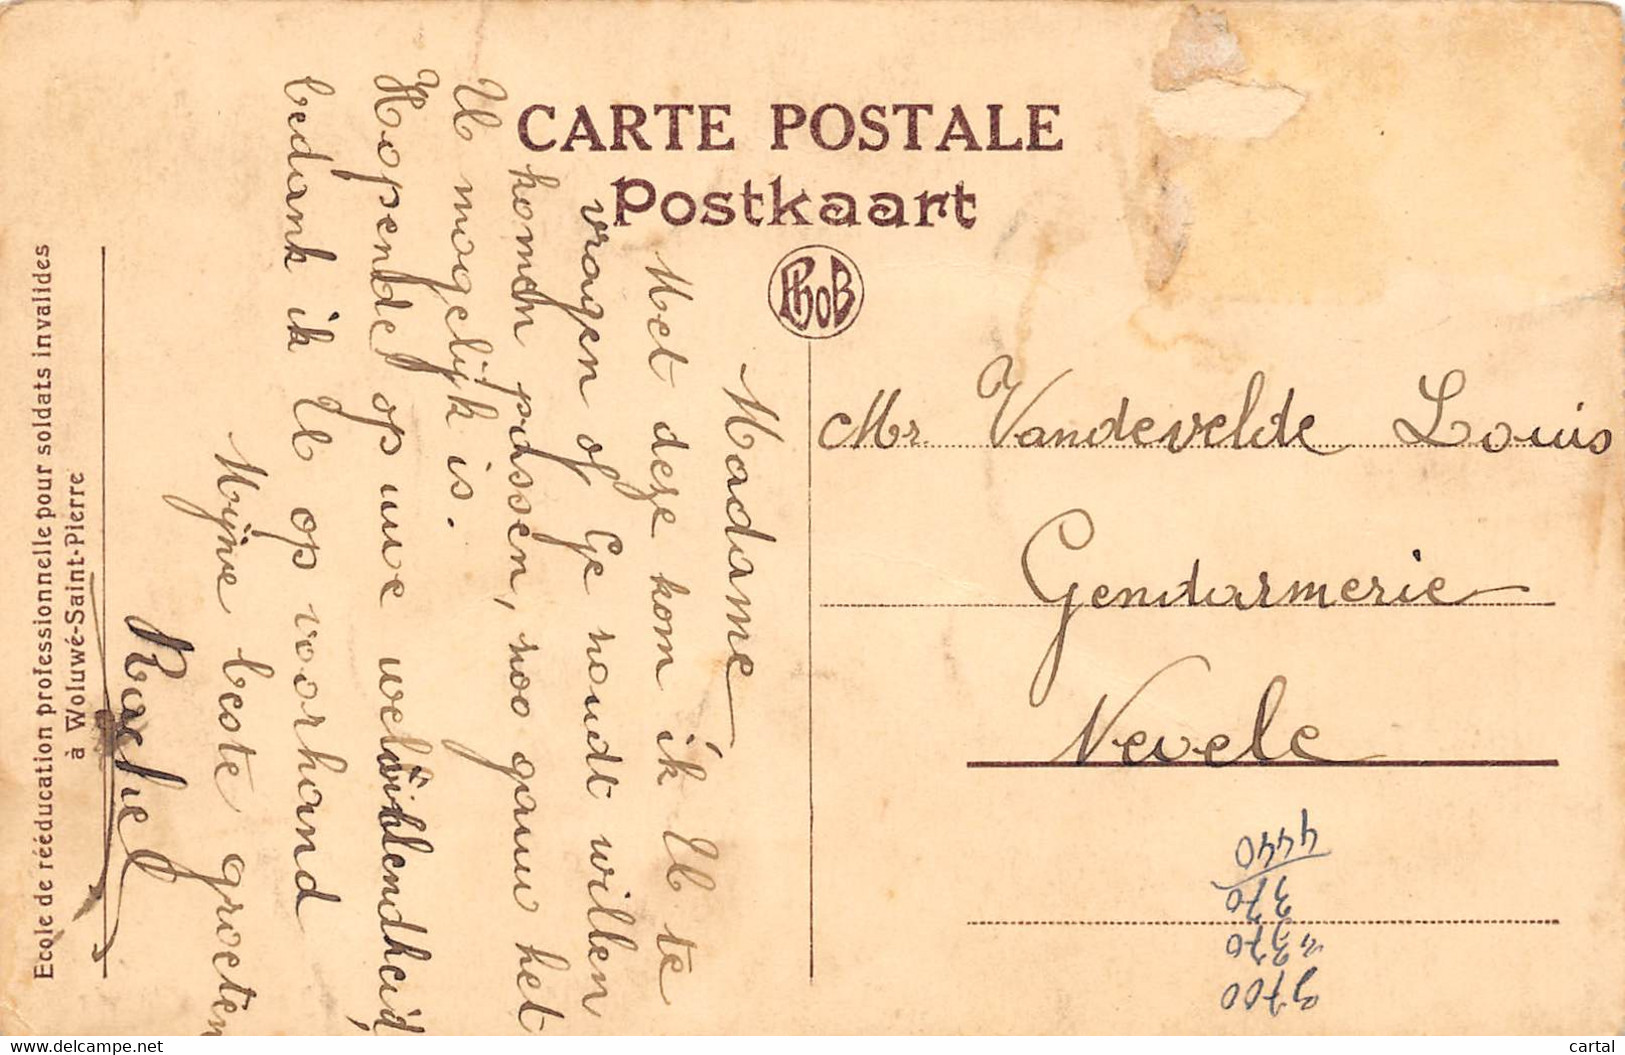 CARTE POSTALE
Postkaart
PhoB
Ecole de rééducation professionnelle pour soldats invalides
à Woluwé-Saint-Pierre
Madame
Met deze kom ik U te
vragen of Ge zoudt willen
komen passen, zoo gauw het
U mogelijk is.
Hopende op uwe welwillendheid,
bedank ik U op voorhand
Mijne beste groeten
Rachel
Mr. Vandevelde Louis
Gendarmerie
Nevele
3700
370
370
4440
www.delcampe.net
cartal